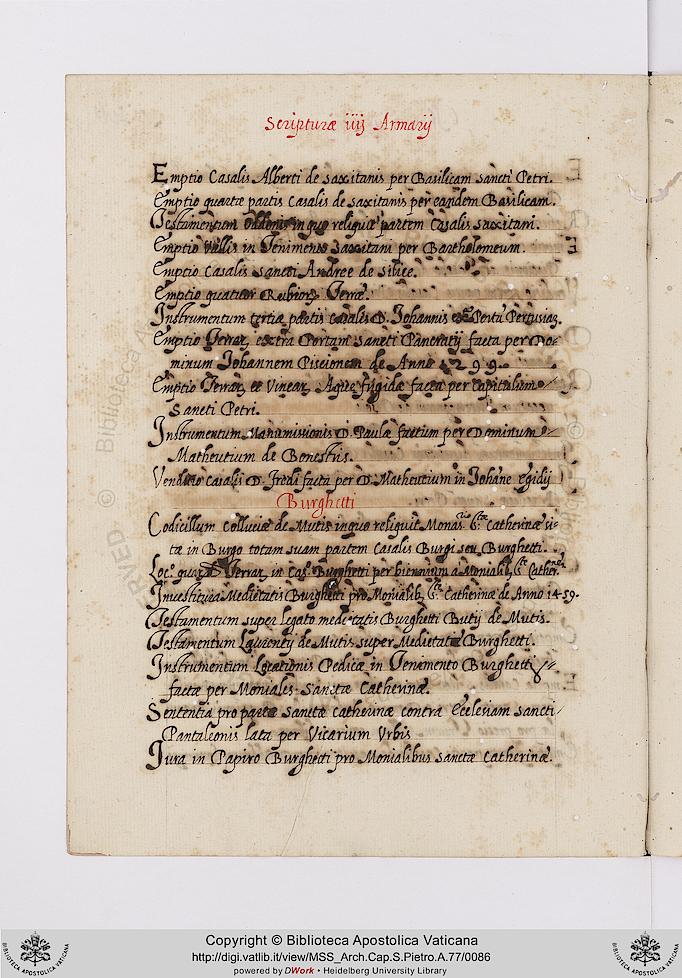 Scripturæ iiij Armarij
Emptio Casalis Alberti de saxitanis per Basilicam sancti Petri.
Emptio quartæ partis Casalis de saxitanis per eandem Basilicam.
Testamentum Oddonis in quo reliquit partem Casalis saxitani.
Emptio Vallis in Tenimento saxitani per Bartholomeum.
Emptio Casalis sancti Andree de silice.
Emptio quatuor Rubior Terræ.
Instrumentum tertiæ partis Casalis D. Iohannis Porta Pertusiar.
Emptio Terrar, extra Portam sancti Pancratij facta per Do-
minum Iohannem Piscionem de Anno 1299.
Emptio Terrar, et Vinear, Aquæ frigidæ facta per Capitulum
Sancti Petri.
Instrumentum Manumissionis D. Paulæ factum per Dominum
Matheutium de Bonestiis.
Venditio Casalis D. Fredi facta per D. Matheutium in Iohane Egidij
Burghetti
Codicillum Colluciæ de Mutis in quo reliquit Monas.rio S.tæ Catherinæ si-
tæ in Burgo totam suam partem Casalis Burgi seu Burghetti.
Loc.o Terrar, in Cas. Burghetti per biennium a Monialib, S.tæ Cather.
Investitura Medietatis Burghetti pro Monialib, S.tæ Catherinæ de Anno 1459.
Testamentum super legato medietatis Burghetti Butij de Mutis.
Testamentum Laurentij de Mutis super Medietate Burghetti.
Instrumentum Locationis Pedicæ in Tenimento Burghetti
factæ per Moniales Sanctæ Catherinæ.
Sententia pro parte Sanctæ Catherinæ contra Ecclesiam Sancti
Pantaleonis lata per Vicarium Vrbis
Iura in Papiro Burghetti pro Monialibus sanctæ Catherinæ.
Copyright © Biblioteca Apostolica Vaticana
http://digi.vatlib.it/view/MSS_Arch.Cap.S.Pietro.A.77/0086
powered by DWork • Heidelberg University Library